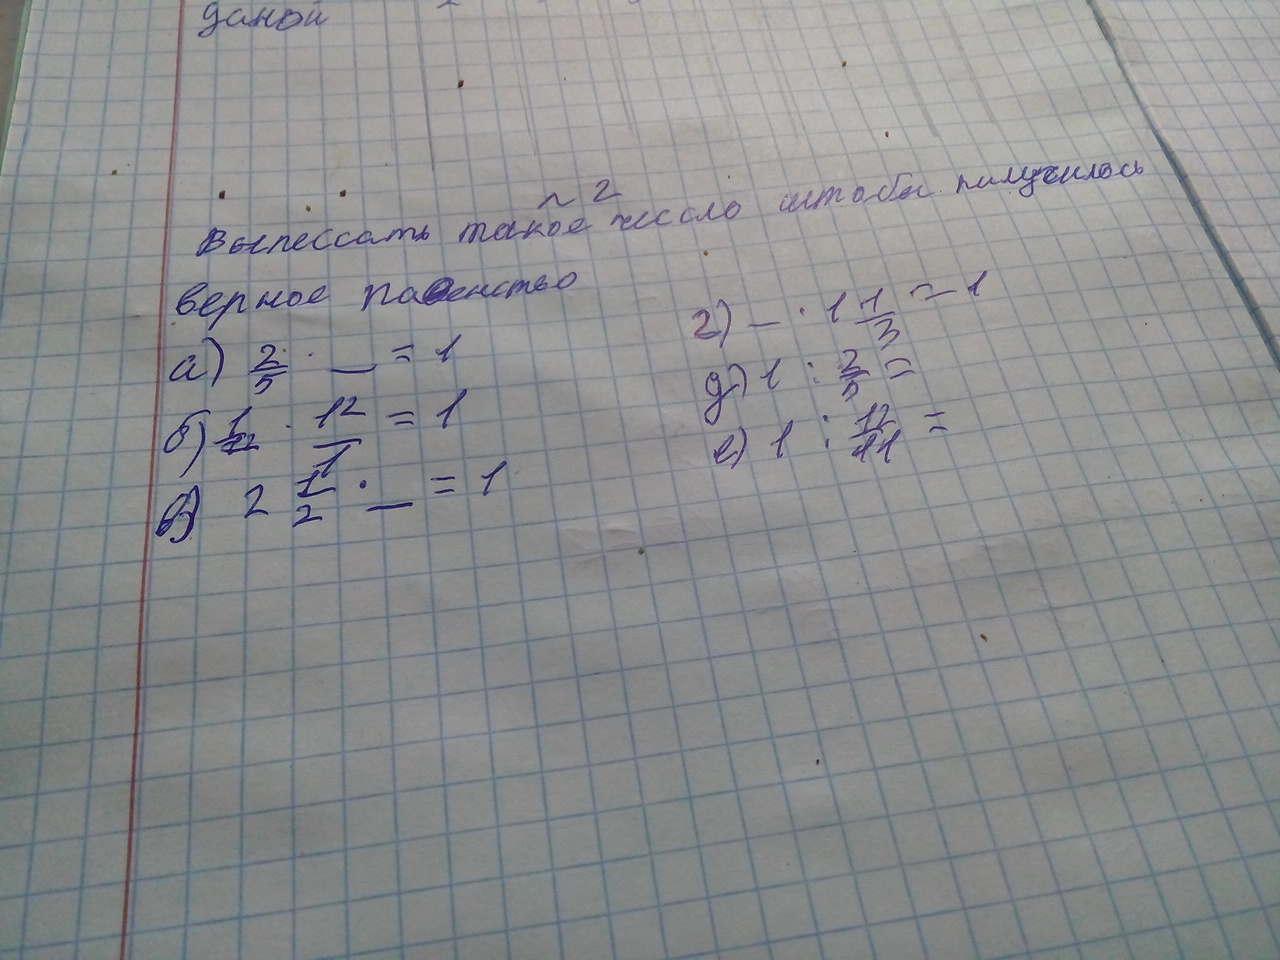 даной
№ 2
Выпессать такое чессло штобы получилось
верное равенство
а) 2/5 · _ = 1
б) 1/12 · 12/1 = 1
в) 2 1/2 · _ = 1
г) _ · 1 1/3 = 1
д) 1 : 2/5 =
е) 1 : 12/11 =